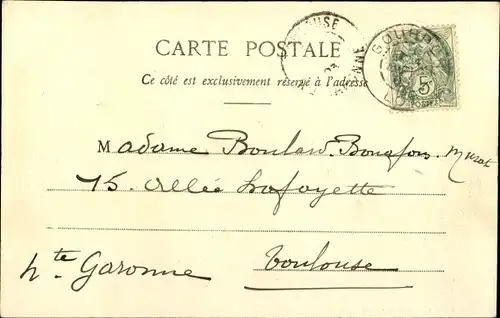 CARTE POSTALE
Ce côté est exclusivement réservé à l'adresse
Madame Boulard-Bonafous-Murat
15. Allée Lafayette
Toulouse
hte Garonne
5c